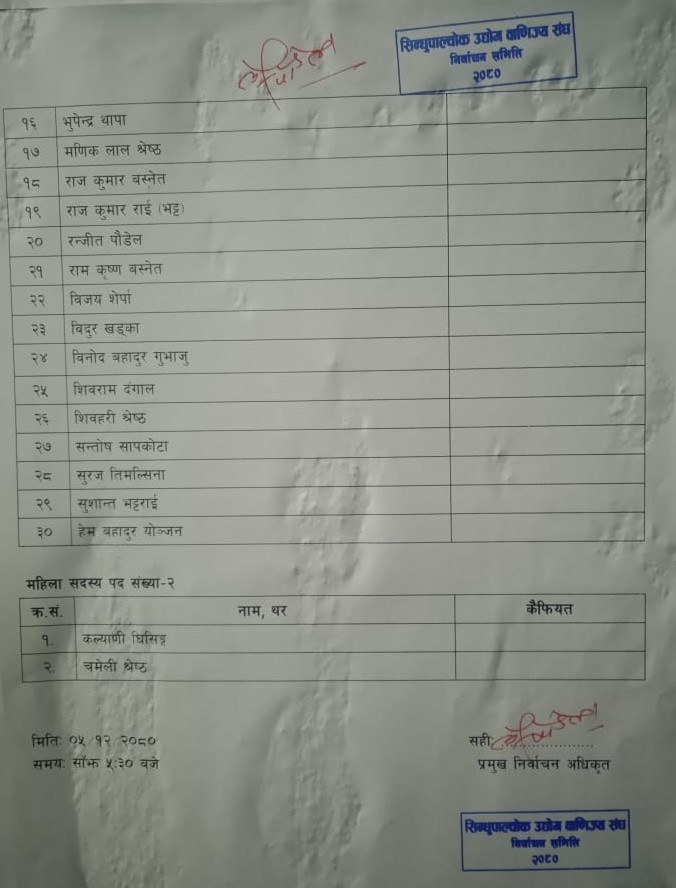 सिन्धुपाल्चोक उद्योग वाणिज्य संघ
निर्वाचन समिति
२०८०
१६ भुपेन्द्र थापा
१७ मणिक लाल श्रेष्ठ
१८ राज कुमार बस्नेत
१९ राज कुमार राई (भट्ट)
२० रन्जीत पौडेल
२१ राम कृष्ण बस्नेत
२२ विजय शेर्पा
२३ विदुर खड्का
२४ विनोद बहादुर गुभाजु
२५ शिवराम दंगाल
२६ शिवहरी श्रेष्ठ
२७ सन्तोष सापकोटा
२८ सुरज तिमल्सिना
२९ सुशान्त भट्टराई
३० हेम बहादुर योञ्जन
महिला सदस्य पद संख्या-२
क्र.सं. नाम, थर कैफियत
१. कल्याणी घिसिङ्ग
२. चमेली श्रेष्ठ
मिति: ०५/१२/२०८०
समय: साँझ ५:३० बजे
सही:....................
प्रमुख निर्वाचन अधिकृत
सिन्धुपाल्चोक उद्योग वाणिज्य संघ
निर्वाचन समिति
२०८०